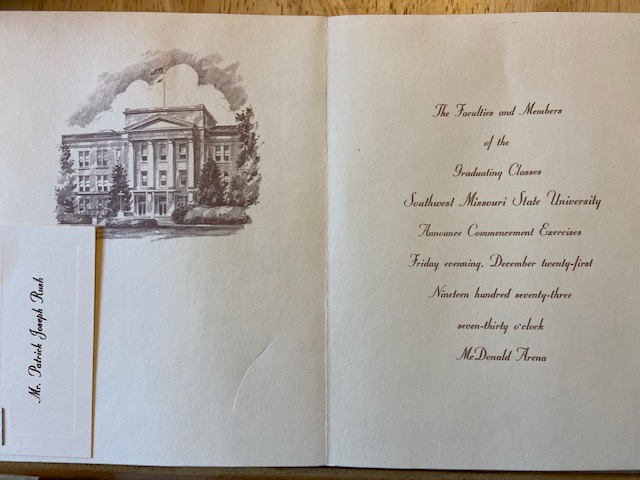 Mr. Patrick Joseph Rush
The Faculties and Members
of the
Graduating Classes
Southwest Missouri State University
Announce Commencement Exercises
Friday evenning, December twenty-first
Nineteen hundred seventy-three
seven-thirty o'clock
McDonald Arena